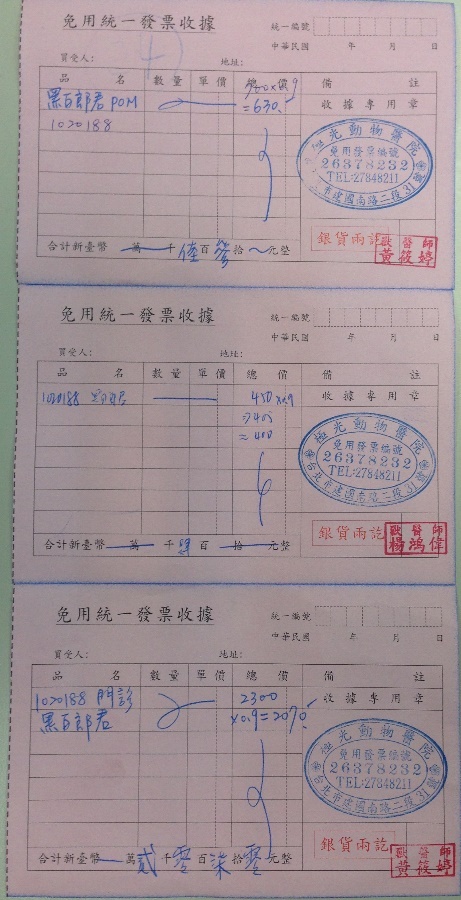 免用統一發票收據
統一編號
中華民國 年 月 日
買受人: 地址:
品 名 數量 單價 總價 備 註
黑百郎君 POM 700x0.9
=630.
收據專用章
1020188
極光動物醫院
免用發票編號
26378232
TEL:27848211
市建國南路二段31
銀貨兩訖
獸醫師
黃筱婷
合計新臺幣 萬 千 陸 百 參 拾 元整
免用統一發票收據
統一編號
中華民國 年 月 日
買受人: 地址:
品 名 數量 單價 總價 備 註
1020188 450x0.9
收據專用章
=405
=400
極光動物醫院
免用發票編號
26378232
TEL:27848211
台北市建國南路二段31號
銀貨兩訖
獸醫師
楊鴻偉
合計新臺幣 萬 千 肆 百 拾 元整
免用統一發票收據
統一編號
中華民國 年 月 日
買受人: 地址:
品 名 數量 單價 總價 備 註
1020188 門診 2300
收據專用章
黑百郎君 x0.9=2070
極光動物醫院
免用發票編號
26378232
TEL:27848211
台北市建國南路二段31號
銀貨兩訖
獸醫師
黃筱婷
合計新臺幣 萬 貳 千 零 百 柒 拾 零 元整